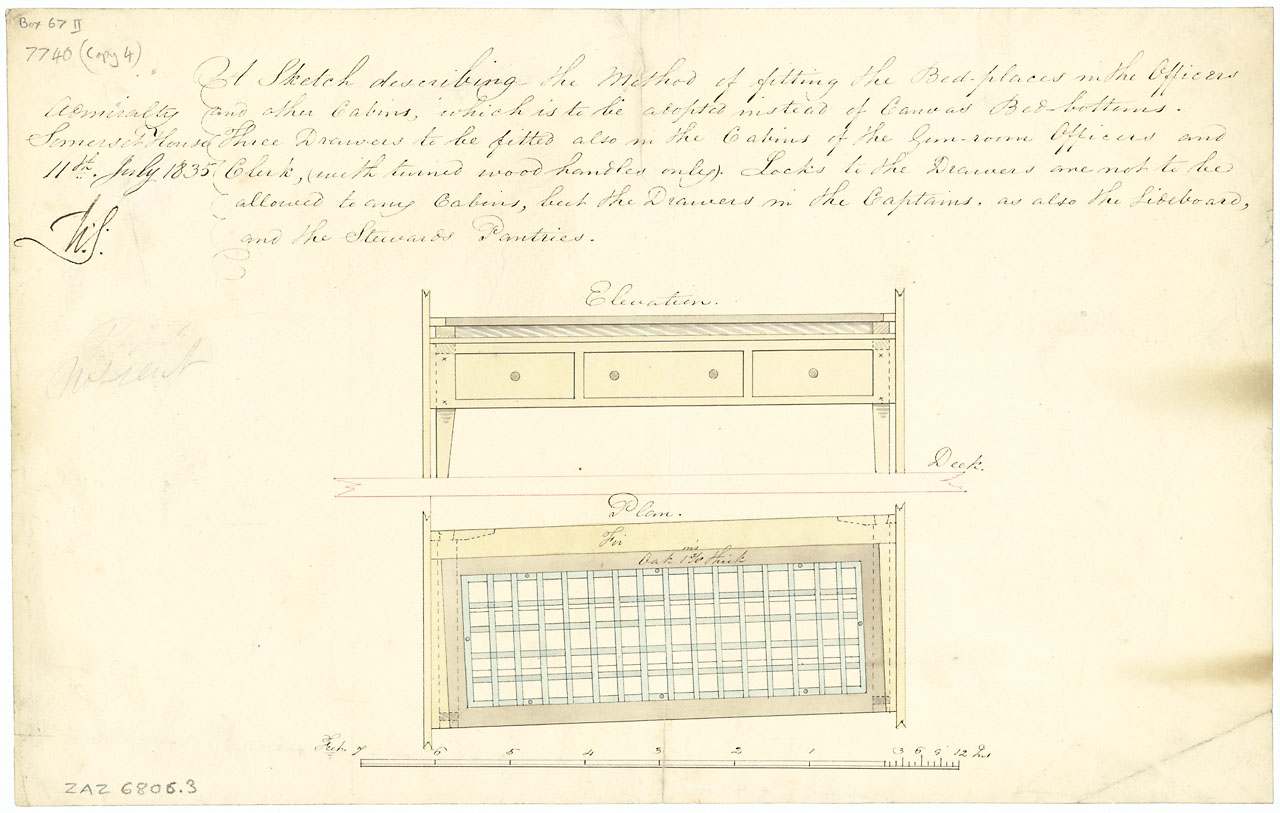 Box 67 II
7740 (Copy 4)
A Sketch describing the Method of fitting the Bed-places in the Officers
and other Cabins, which is to be adopted instead of Canvas Bed-bottoms.
Three Drawers to be fitted also in the Cabins of the Gun-room Officers and
Clerk, (with turned wood handles only). Locks to the Drawers are not to be
allowed to any Cabins, but the Drawers in the Captains. as also the Sideboard,
and the Stewards Pantries.
Admiralty
Somerset House
11th. July 1835
W.S.
Elevation.
Deck.
Plan.
Fir
Oak thick
Feet 7 6 5 4 3 2 1 3 6 9 12 Ins
ZAZ 6806.3